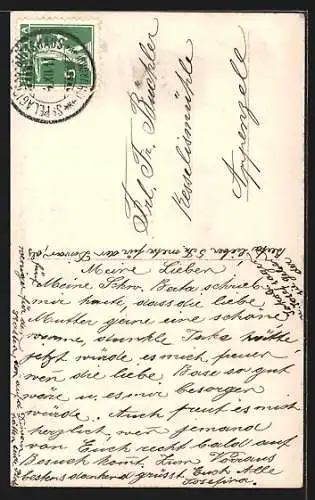 HELVETIA
5
ST PELAGI
Frl. Fr. Büchler
Kesselismühle
Appenzell
Meine Lieben!
Meine Schw. Beata schrieb
mir heut, dass die liebe
Mutter gerne eine schöne
warme, dunkle Jake hätte
jetzt würde es mich freuen
wen die liebe Base so gut
wäre u. es mir besorgen
würde. Auch freut es mich
herzlich, wen jemand
von Euch recht bald auf
Besuch komt. Zum Voraus
bestens dankend grüsst Euch Alle
Josefina.
lieber 5 Fr. mehr für